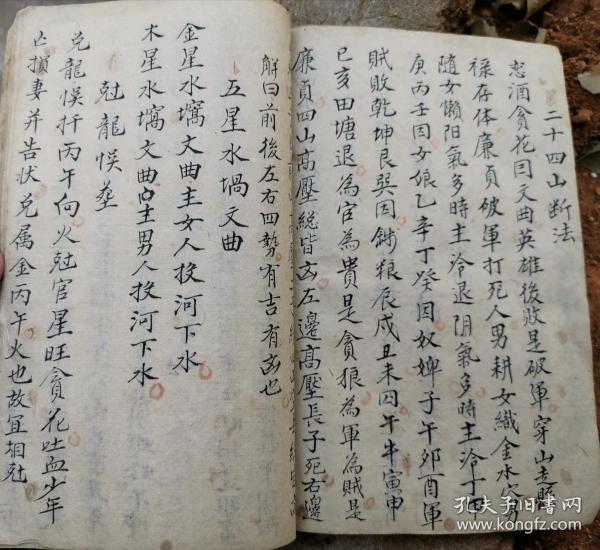 二十四山断法
恋酒貪花因文曲英雄後敗是破軍穿山走
禄存体廉貞破軍打死人男耕女織金水
随女懶阳氣多時主冷退阴氣多時主冷丁
庚丙壬因女娘乙辛丁癸因奴婢子午卯酉軍
賊敗乾坤艮巽因餓狼辰戍丑未因午牛寅申
巳亥田塘退為官為貴是貪狼為軍為賊是
廉貞四山高壓総皆凶左邊高壓長子死右邊
觧曰前後左右四勢有吉有凶也
五星水堝文曲
金星水窩文曲主女人投河下水
木星水窩文曲主男人投河下水
尅龍悮塟
兑龍悮扦丙午向火尅官星旺貪花吐血少年
亡損妻并告状兑属金丙午火也故宜相尅
孔夫子旧书网
www.kongfz.com